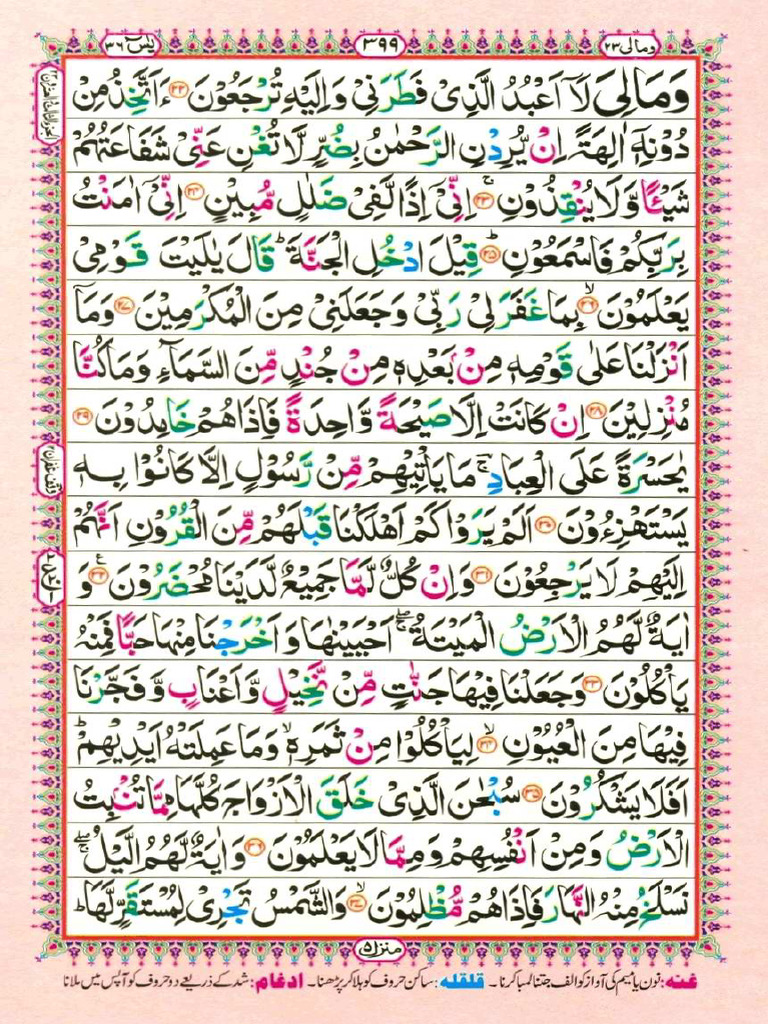 ومالی ۲۳ ۳۹۹ یٰسٓ ۳۶
وَمَا لِیَ لَاۤ اَعْبُدُ الَّذِیْ فَطَرَنِیْ وَاِلَیْهِ تُرْجَعُوْنَ ﴿۲۲﴾ ءَاَتَّخِذُ مِنْ
دُوْنِهٖۤ اٰلِهَةً اِنْ یُّرِدْنِ الرَّحْمٰنُ بِضُرٍّ لَّا تُغْنِ عَنِّیْ شَفَاعَتُهُمْ
شَیْـًٔا وَّلَا یُنْقِذُوْنِ ﴿۲۳﴾ۚ اِنِّیْۤ اِذًا لَّفِیْ ضَلٰلٍ مُّبِیْنٍ ﴿۲۴﴾ اِنِّیْۤ اٰمَنْتُ
بِرَبِّكُمْ فَاسْمَعُوْنِ ﴿۲۵﴾ؕ قِیْلَ ادْخُلِ الْجَنَّةَ ؕ قَالَ یٰلَیْتَ قَوْمِیْ
یَعْلَمُوْنَ ﴿۲۶﴾ۙ بِمَا غَفَرَ لِیْ رَبِّیْ وَجَعَلَنِیْ مِنَ الْمُكْرَمِیْنَ ﴿۲۷﴾ وَمَاۤ
اَنْزَلْنَا عَلٰی قَوْمِهٖ مِنْۢ بَعْدِهٖ مِنْ جُنْدٍ مِّنَ السَّمَآءِ وَمَا كُنَّا
مُنْزِلِیْنَ ﴿۲۸﴾ اِنْ كَانَتْ اِلَّا صَیْحَةً وَّاحِدَةً فَاِذَا هُمْ خٰمِدُوْنَ ﴿۲۹﴾
یٰحَسْرَةً عَلَی الْعِبَادِ ۚؔ مَا یَاْتِیْهِمْ مِّنْ رَّسُوْلٍ اِلَّا كَانُوْا بِهٖ
یَسْتَهْزِءُوْنَ ﴿۳۰﴾ اَلَمْ یَرَوْا كَمْ اَهْلَكْنَا قَبْلَهُمْ مِّنَ الْقُرُوْنِ اَنَّهُمْ
اِلَیْهِمْ لَا یَرْجِعُوْنَ ﴿۳۱﴾ وَاِنْ كُلٌّ لَّمَّا جَمِیْعٌ لَّدَیْنَا مُحْضَرُوْنَ ﴿۳۲﴾ۧ وَ
اٰیَةٌ لَّهُمُ الْاَرْضُ الْمَیْتَةُ ۖۚ اَحْیَیْنٰهَا وَاَخْرَجْنَا مِنْهَا حَبًّا فَمِنْهُ
یَاْكُلُوْنَ ﴿۳۳﴾ وَجَعَلْنَا فِیْهَا جَنّٰتٍ مِّنْ نَّخِیْلٍ وَّاَعْنَابٍ وَّفَجَّرْنَا
فِیْهَا مِنَ الْعُیُوْنِ ﴿۳۴﴾ۙ لِیَاْكُلُوْا مِنْ ثَمَرِهٖ ۙ وَمَا عَمِلَتْهُ اَیْدِیْهِمْ ؕ
اَفَلَا یَشْكُرُوْنَ ﴿۳۵﴾ سُبْحٰنَ الَّذِیْ خَلَقَ الْاَزْوَاجَ كُلَّهَا مِمَّا تُنْۢبِتُ
الْاَرْضُ وَمِنْ اَنْفُسِهِمْ وَمِمَّا لَا یَعْلَمُوْنَ ﴿۳۶﴾ وَاٰیَةٌ لَّهُمُ الَّیْلُ ۖۚ
نَسْلَخُ مِنْهُ النَّهَارَ فَاِذَا هُمْ مُّظْلِمُوْنَ ﴿۳۷﴾ۙ وَالشَّمْسُ تَجْرِیْ لِمُسْتَقَرٍّ لَّهَا ؕ
منزل ۵
غنه: نون یا میم کی آواز کو الف جتنا لمبا کرنا ۔ قلقله: ساکن حروف کو ہلا کر پڑھنا ۔ ادغام: شد کے ذریعے دو حروف کو آپس میں ملانا
وقف غفران